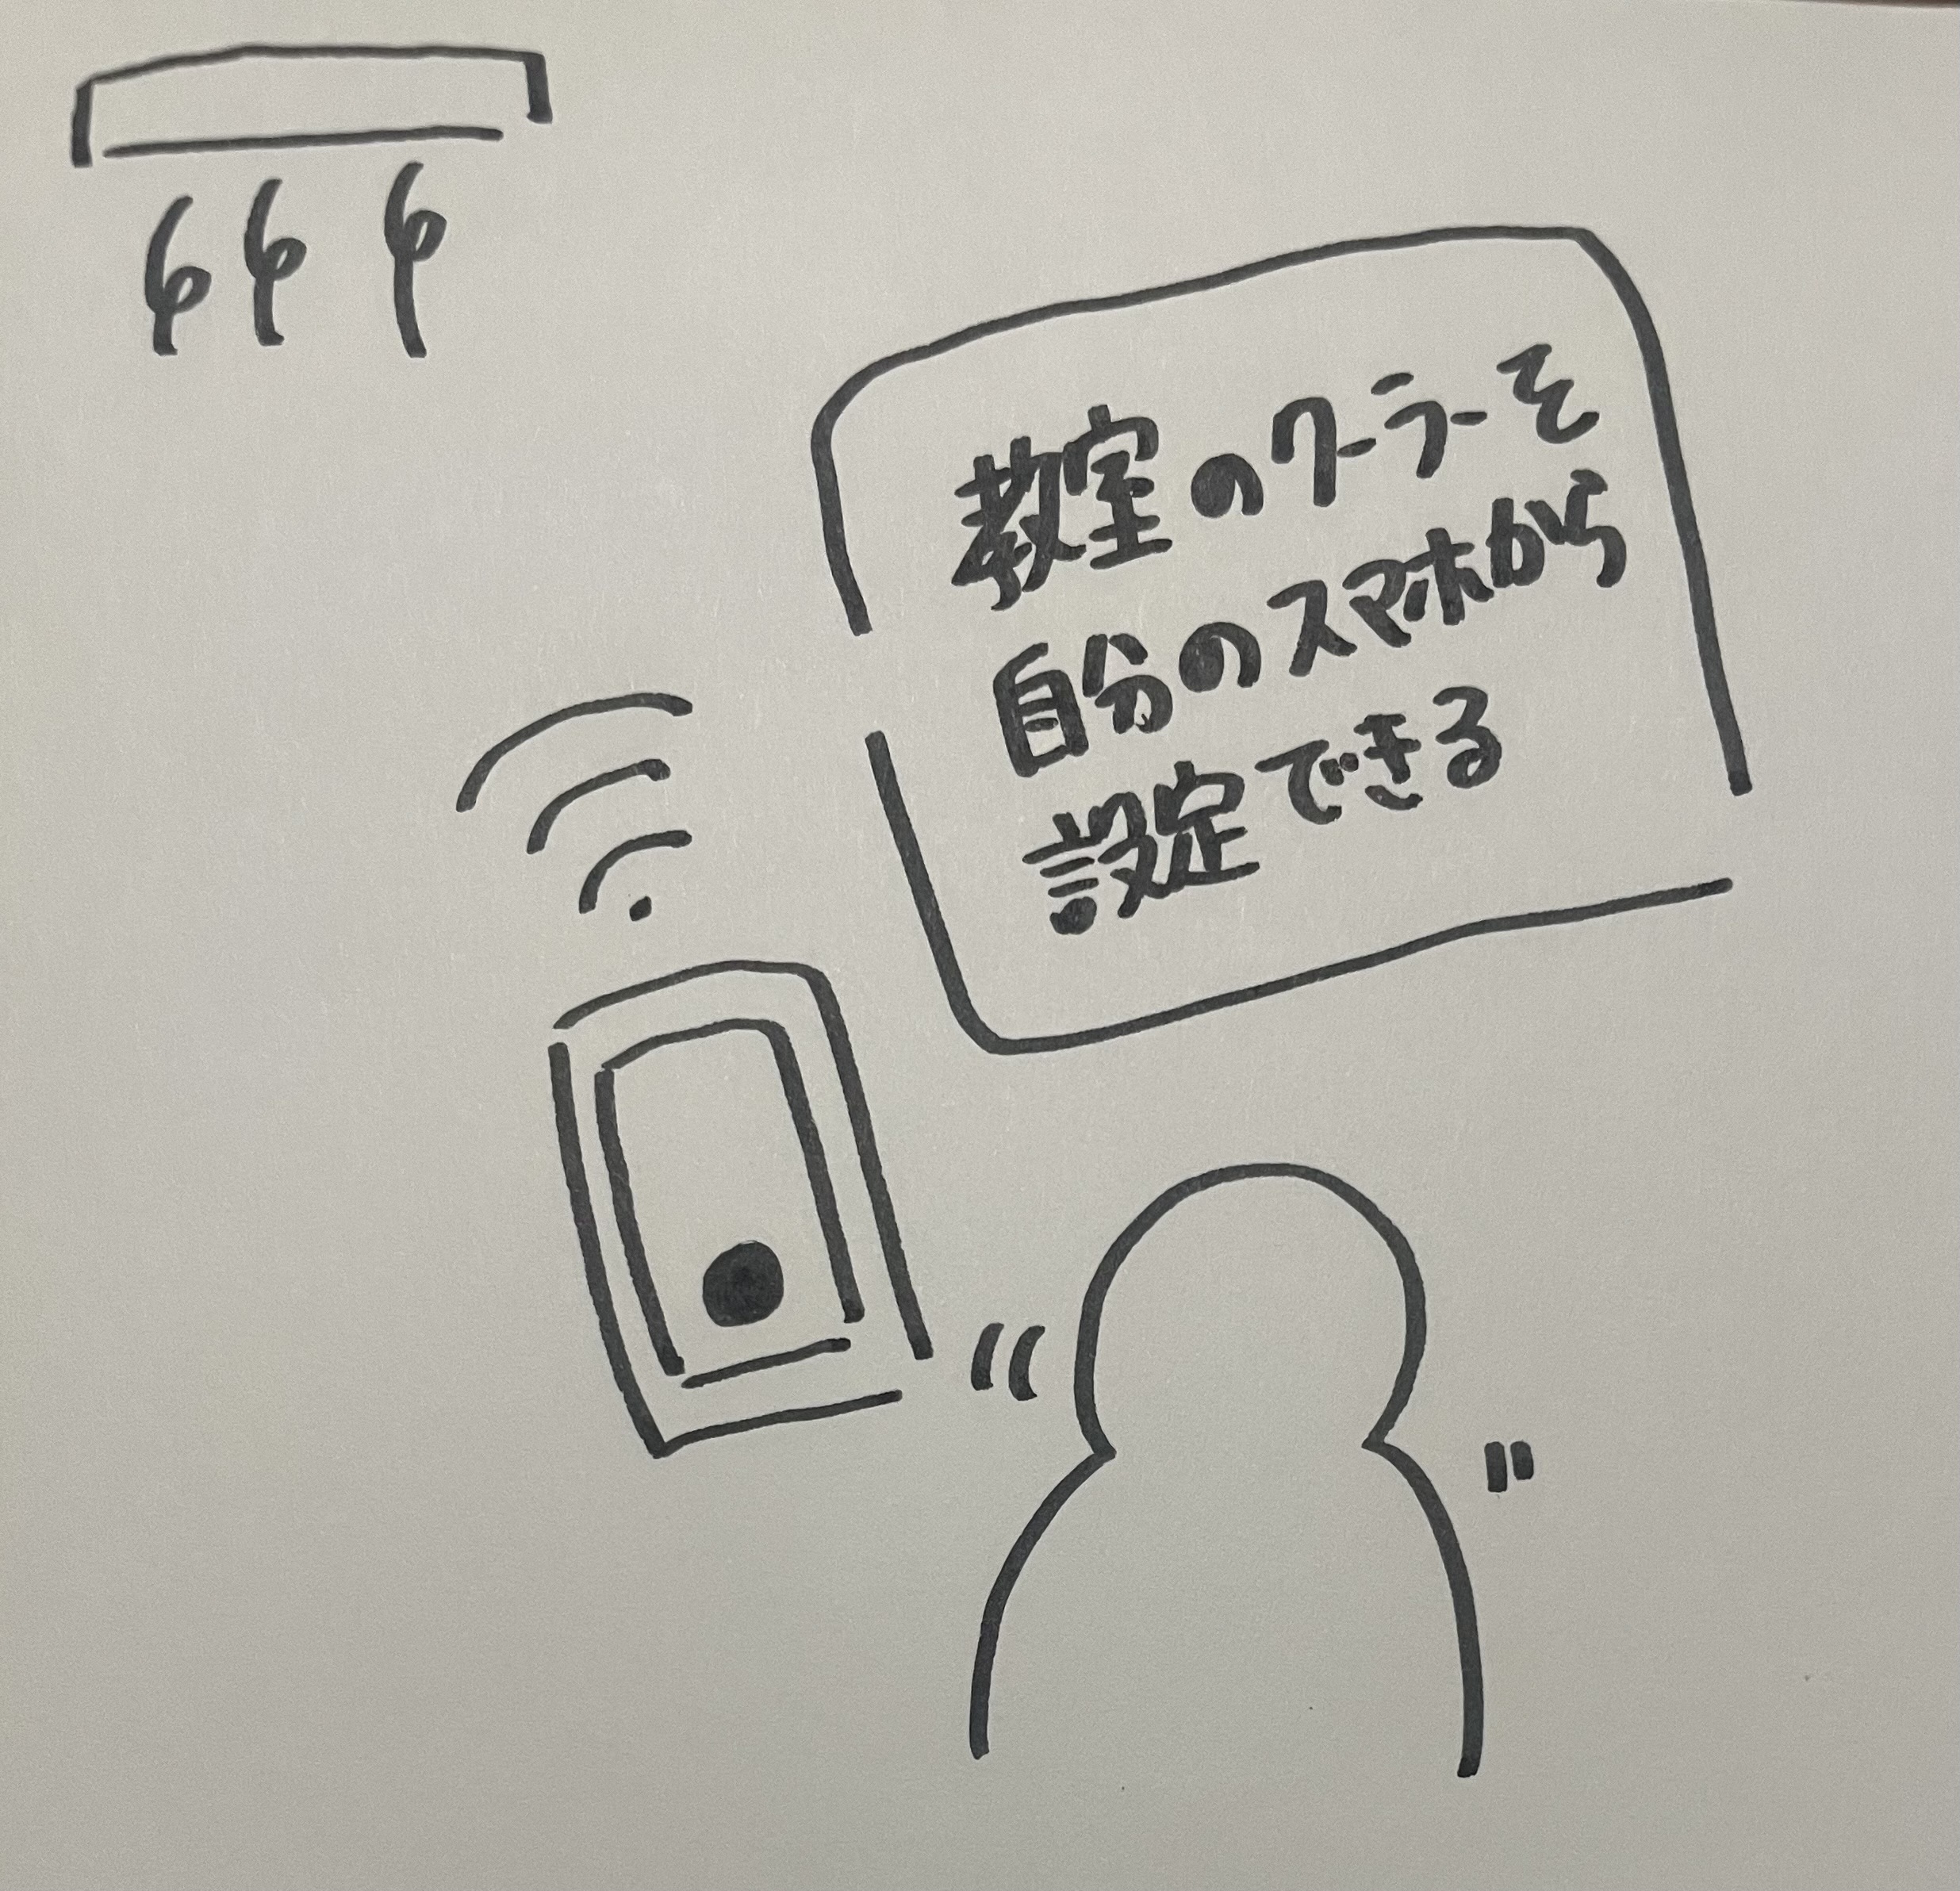 教室のクーラーを
自分のスマホから
設定できる